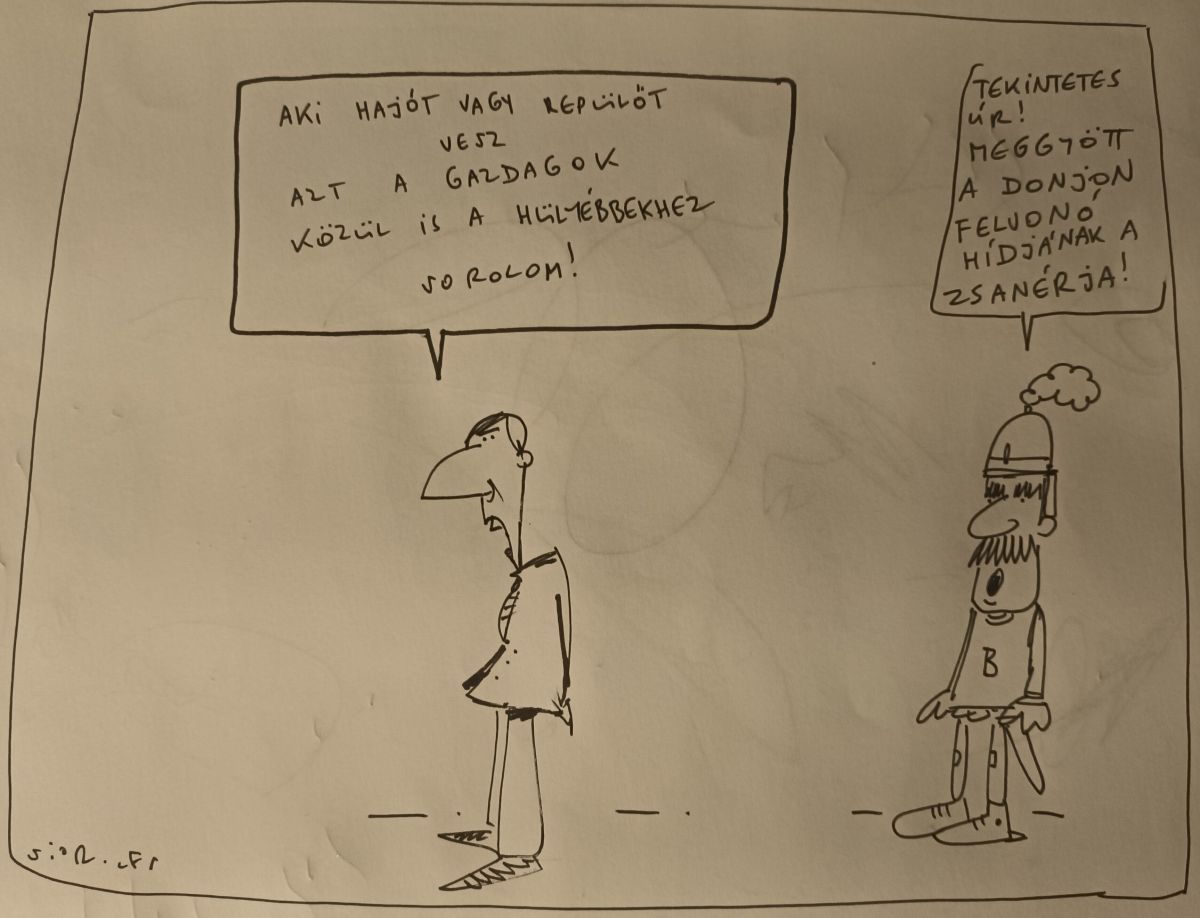 AKi HAJÓT VAGY REPÜLŐT
VESZ
AZT A GAZDAGOK
KÖZÜL iS A HÜLYÉBBEKHEZ
SOROLOM!
TEKiNTETES
ÚR!
MEGGYÖTT
A DONJON
FELVONÓ
HÍDJÁNAK A
ZSANÉRJA!
B